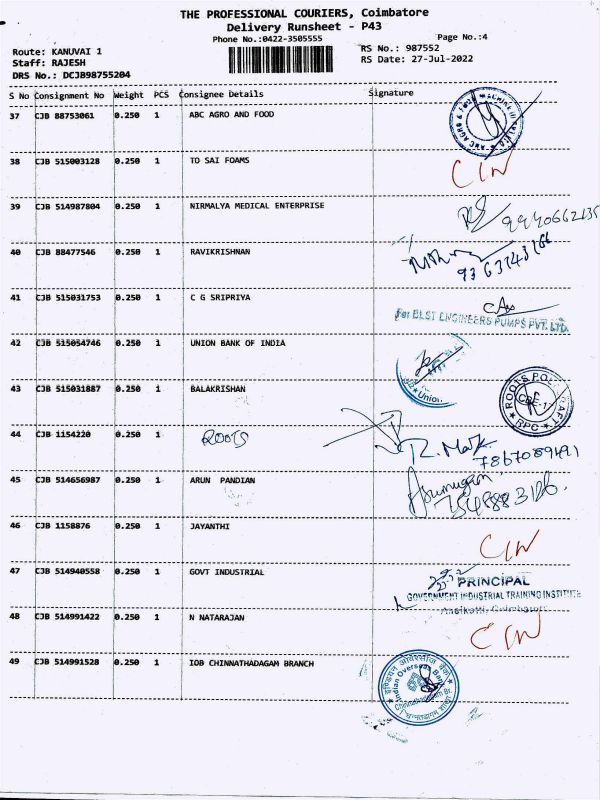 THE PROFESSIONAL COURIERS, Coimbatore
Delivery Runsheet - P43
Phone No.:0422-3505555 Page No.:4
Route: KANUVAI 1 RS No.: 987552
Staff: RAJESH RS Date: 27-Jul-2022
DRS No.: DCJB98755204
S No Consignment No Weight PCS Consignee Details Signature
37 CJB 88753061 0.250 1 ABC AGRO AND FOOD
38 CJB 515003128 0.250 1 TO SAI FOAMS
39 CJB 514987804 0.250 1 NIRMALYA MEDICAL ENTERPRISE
40 CJB 88477546 0.250 1 RAVIKRISHNAN
41 CJB 515031753 0.250 1 C G SRIPRIYA
For BEST ENGINEERS PUMPS PVT. LTD.
42 CJB 515054746 0.250 1 UNION BANK OF INDIA
Union
43 CJB 515031887 0.250 1 BALAKRISHAN
ROOTS
RPC
44 CJB 1154220 0.250 1 ROOTS
7867089491
45 CJB 514656987 0.250 1 ARUN PANDIAN
46 CJB 1158876 0.250 1 JAYANTHI
47 CJB 514940558 0.250 1 GOVT INDUSTRIAL
PRINCIPAL
GOVERNMENT INDUSTRIAL TRAINING INSTITUTE
48 CJB 514991422 0.250 1 N NATARAJAN
49 CJB 514991528 0.250 1 IOB CHINNATHADAGAM BRANCH
Indian Overseas Bank